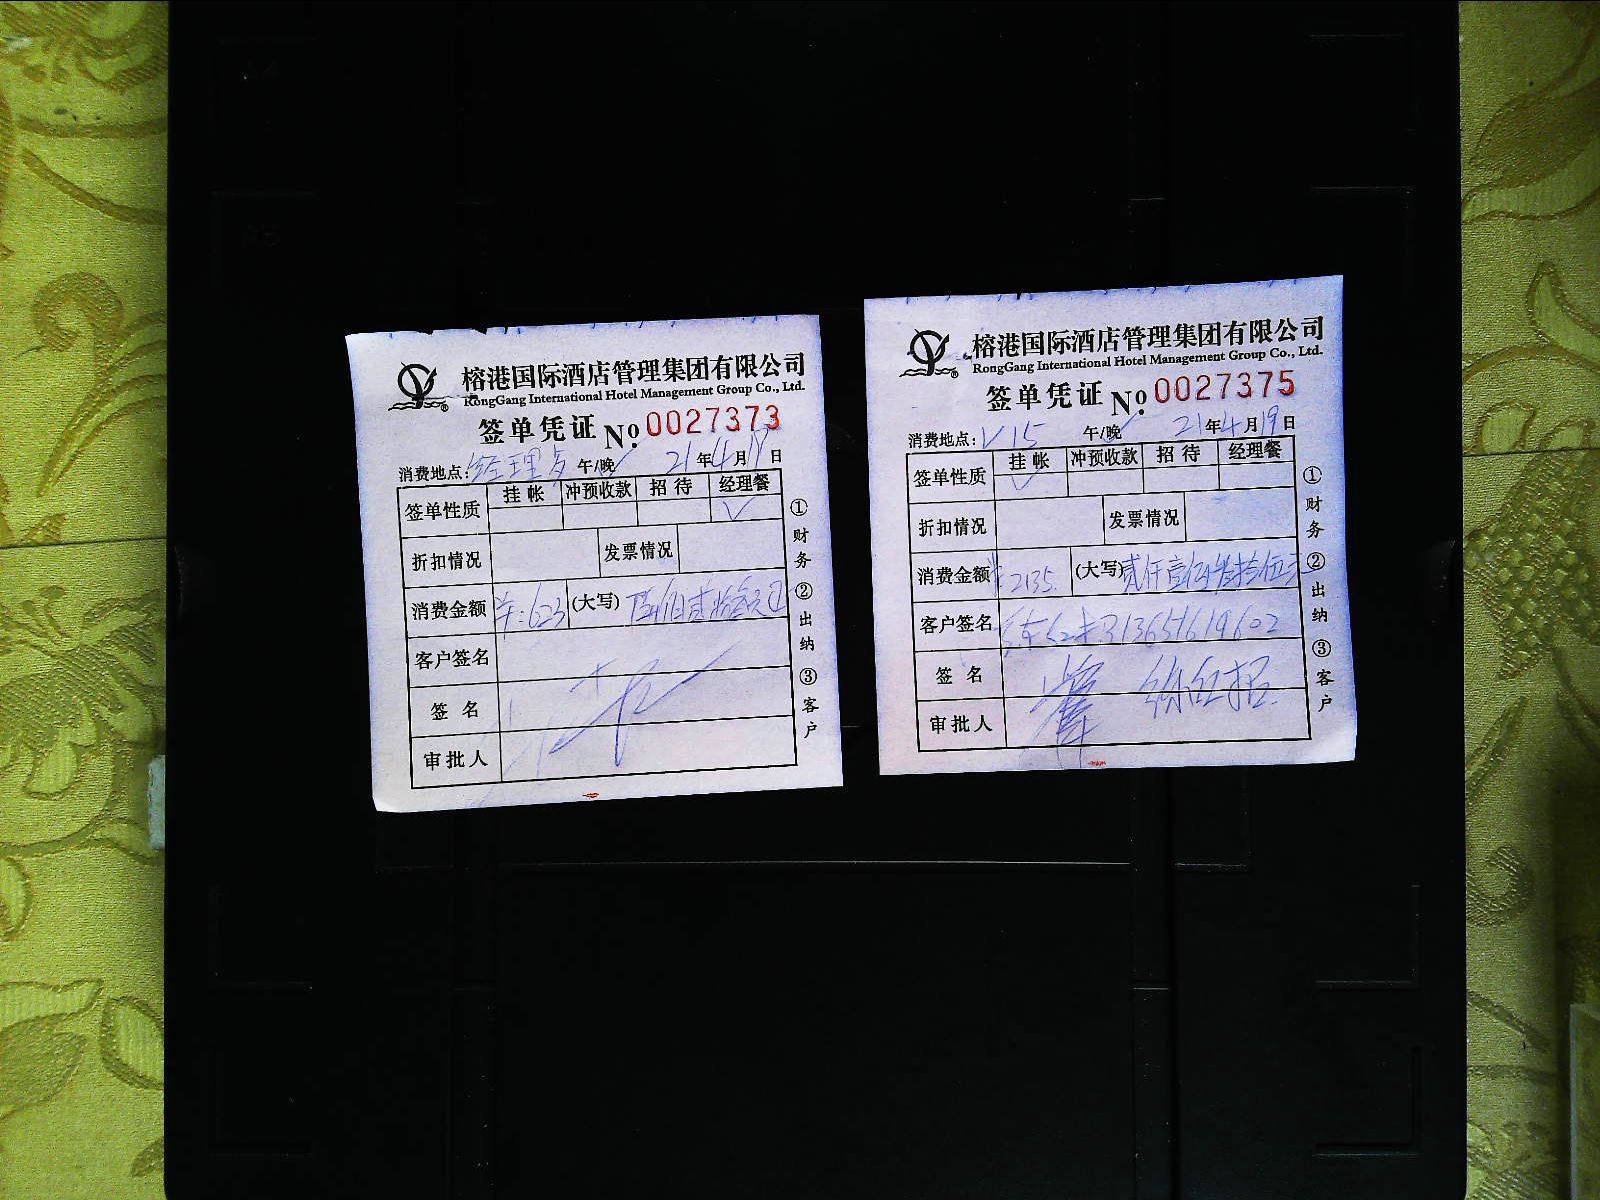 榕港国际酒店管理集团有限公司
RongGang International Hotel Management Group Co., Ltd.
签单凭证 No. 0027373
消费地点: 经理 午/晚 21年4月19日
签单性质 挂帐 冲预收款 招待 经理餐
✓
折扣情况 发票情况
消费金额 ¥:623 (大写) 陆佰贰拾叁元正
客户签名
签名
审批人
①财务 ②出纳 ③客户
榕港国际酒店管理集团有限公司
RongGang International Hotel Management Group Co., Ltd.
签单凭证 No. 0027375
消费地点: V15 午/晚 21年4月19日
签单性质 挂帐 冲预收款 招待 经理餐
✓
折扣情况 发票情况
消费金额 ¥2135. (大写) 贰仟壹佰叁拾伍元
客户签名 13651619602
签名
审批人
①财务 ②出纳 ③客户